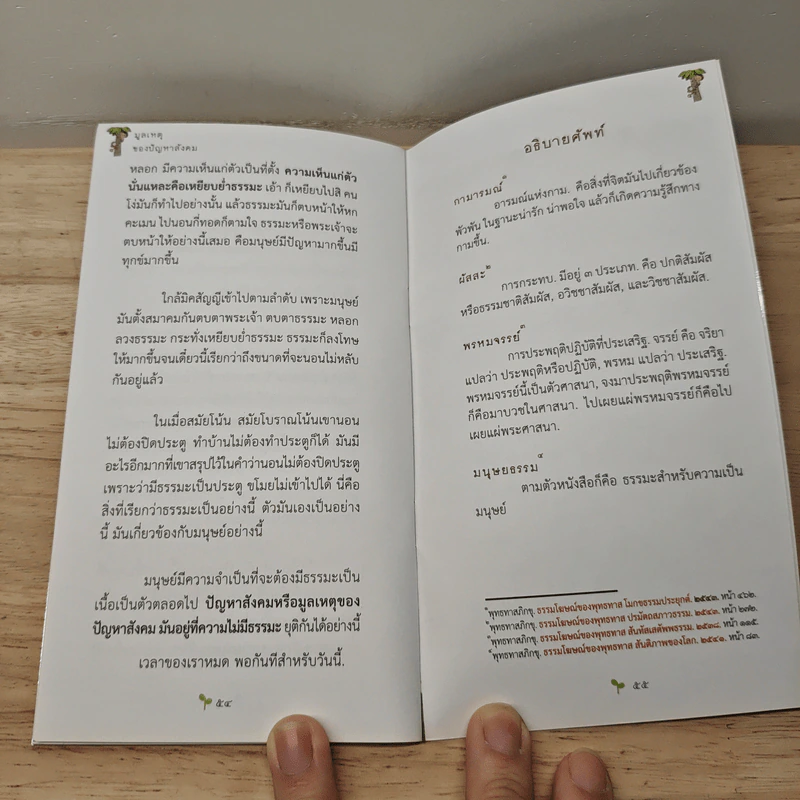 มูลเหตุ
ของปัญหาสังคม
หลอก มีความเห็นแก่ตัวเป็นที่ตั้ง ความเห็นแก่ตัว
นั่นแหละคือเหยียบย่ำธรรมะ เอ้า ก็เหยียบไปสิ คน
โง่มันก็ทำไปอย่างนั้น แล้วธรรมะมันก็ตบหน้าให้หก
คะเมน ไปนอนกี่ทอดก็ตามใจ ธรรมะหรือพระเจ้าจะ
ตบหน้าให้อย่างนี้เสมอ คือมนุษย์มีปัญหามากขึ้นมี
ทุกข์มากขึ้น
ใกล้มิคสัญญีเข้าไปตามลำดับ เพราะมนุษย์
มันตั้งสมาคมกันตบตาพระเจ้า ตบตาธรรมะ หลอก
ลวงธรรมะ กระทั่งเหยียบย่ำธรรมะ ธรรมะก็ลงโทษ
ให้มากขึ้นจนเดี๋ยวนี้เรียกว่าถึงขนาดที่จะนอนไม่หลับ
กันอยู่แล้ว
ในเมื่อสมัยโน้น สมัยโบราณโน้นเขานอน
ไม่ต้องปิดประตู ทำบ้านไม่ต้องทำประตูก็ได้ มันมี
อะไรอีกมากที่เขาสรุปไว้ในคำว่านอนไม่ต้องปิดประตู
เพราะว่ามีธรรมะเป็นประตู ขโมยไม่เข้าไปได้ นี่คือ
สิ่งที่เรียกว่าธรรมะเป็นอย่างนี้ ตัวมันเองเป็นอย่าง
นี้ มันเกี่ยวข้องกับมนุษย์อย่างนี้
มนุษย์มีความจำเป็นที่จะต้องมีธรรมะเป็น
เนื้อเป็นตัวตลอดไป ปัญหาสังคมหรือมูลเหตุของ
ปัญหาสังคม มันอยู่ที่ความไม่มีธรรมะ ยุติกันได้อย่างนี้
เวลาของเราหมด พอกันทีสำหรับวันนี้.
๕๔
อธิบายศัพท์
กามารมณ์๑
อารมณ์แห่งกาม. คือสิ่งที่จิตมันไปเกี่ยวข้อง
พัวพัน ในฐานะน่ารัก น่าพอใจ แล้วก็เกิดความรู้สึกทาง
กามขึ้น.
ผัสสะ๒
การกระทบ. มีอยู่ ๓ ประเภท. คือ ปกติสัมผัส
หรือธรรมชาติสัมผัส, อวิชชาสัมผัส, และวิชชาสัมผัส.
พรหมจรรย์๓
การประพฤติปฏิบัติที่ประเสริฐ. จรรย์ คือ จริยา
แปลว่า ประพฤติหรือปฏิบัติ, พรหม แปลว่า ประเสริฐ.
พรหมจรรย์นี้เป็นตัวศาสนา, จงมาประพฤติพรหมจรรย์
ก็คือมาบวชในศาสนา. ไปเผยแผ่พรหมจรรย์ก็คือไป
เผยแผ่พระศาสนา.
มนุษยธรรม๔
ตามตัวหนังสือก็คือ ธรรมะสำหรับความเป็น
มนุษย์
๑พุทธทาสภิกขุ. ธรรมโฆษณ์ของพุทธทาส โมกขธรรมประยุกต์. ๒๕๔๓. หน้า ๔๖๒.
๒พุทธทาสภิกขุ. ธรรมโฆษณ์ของพุทธทาส ปรมัตถสภาวธรรม. ๒๕๔๓. หน้า ๒๗๒.
๓พุทธทาสภิกขุ. ธรรมโฆษณ์ของพุทธทาส สันทัสเสตัพพธรรม. ๒๕๓๘. หน้า ๑๑๕.
๔พุทธทาสภิกขุ. ธรรมโฆษณ์ของพุทธทาส สันติภาพของโลก. ๒๕๔๑. หน้า ๘๓.
๕๕